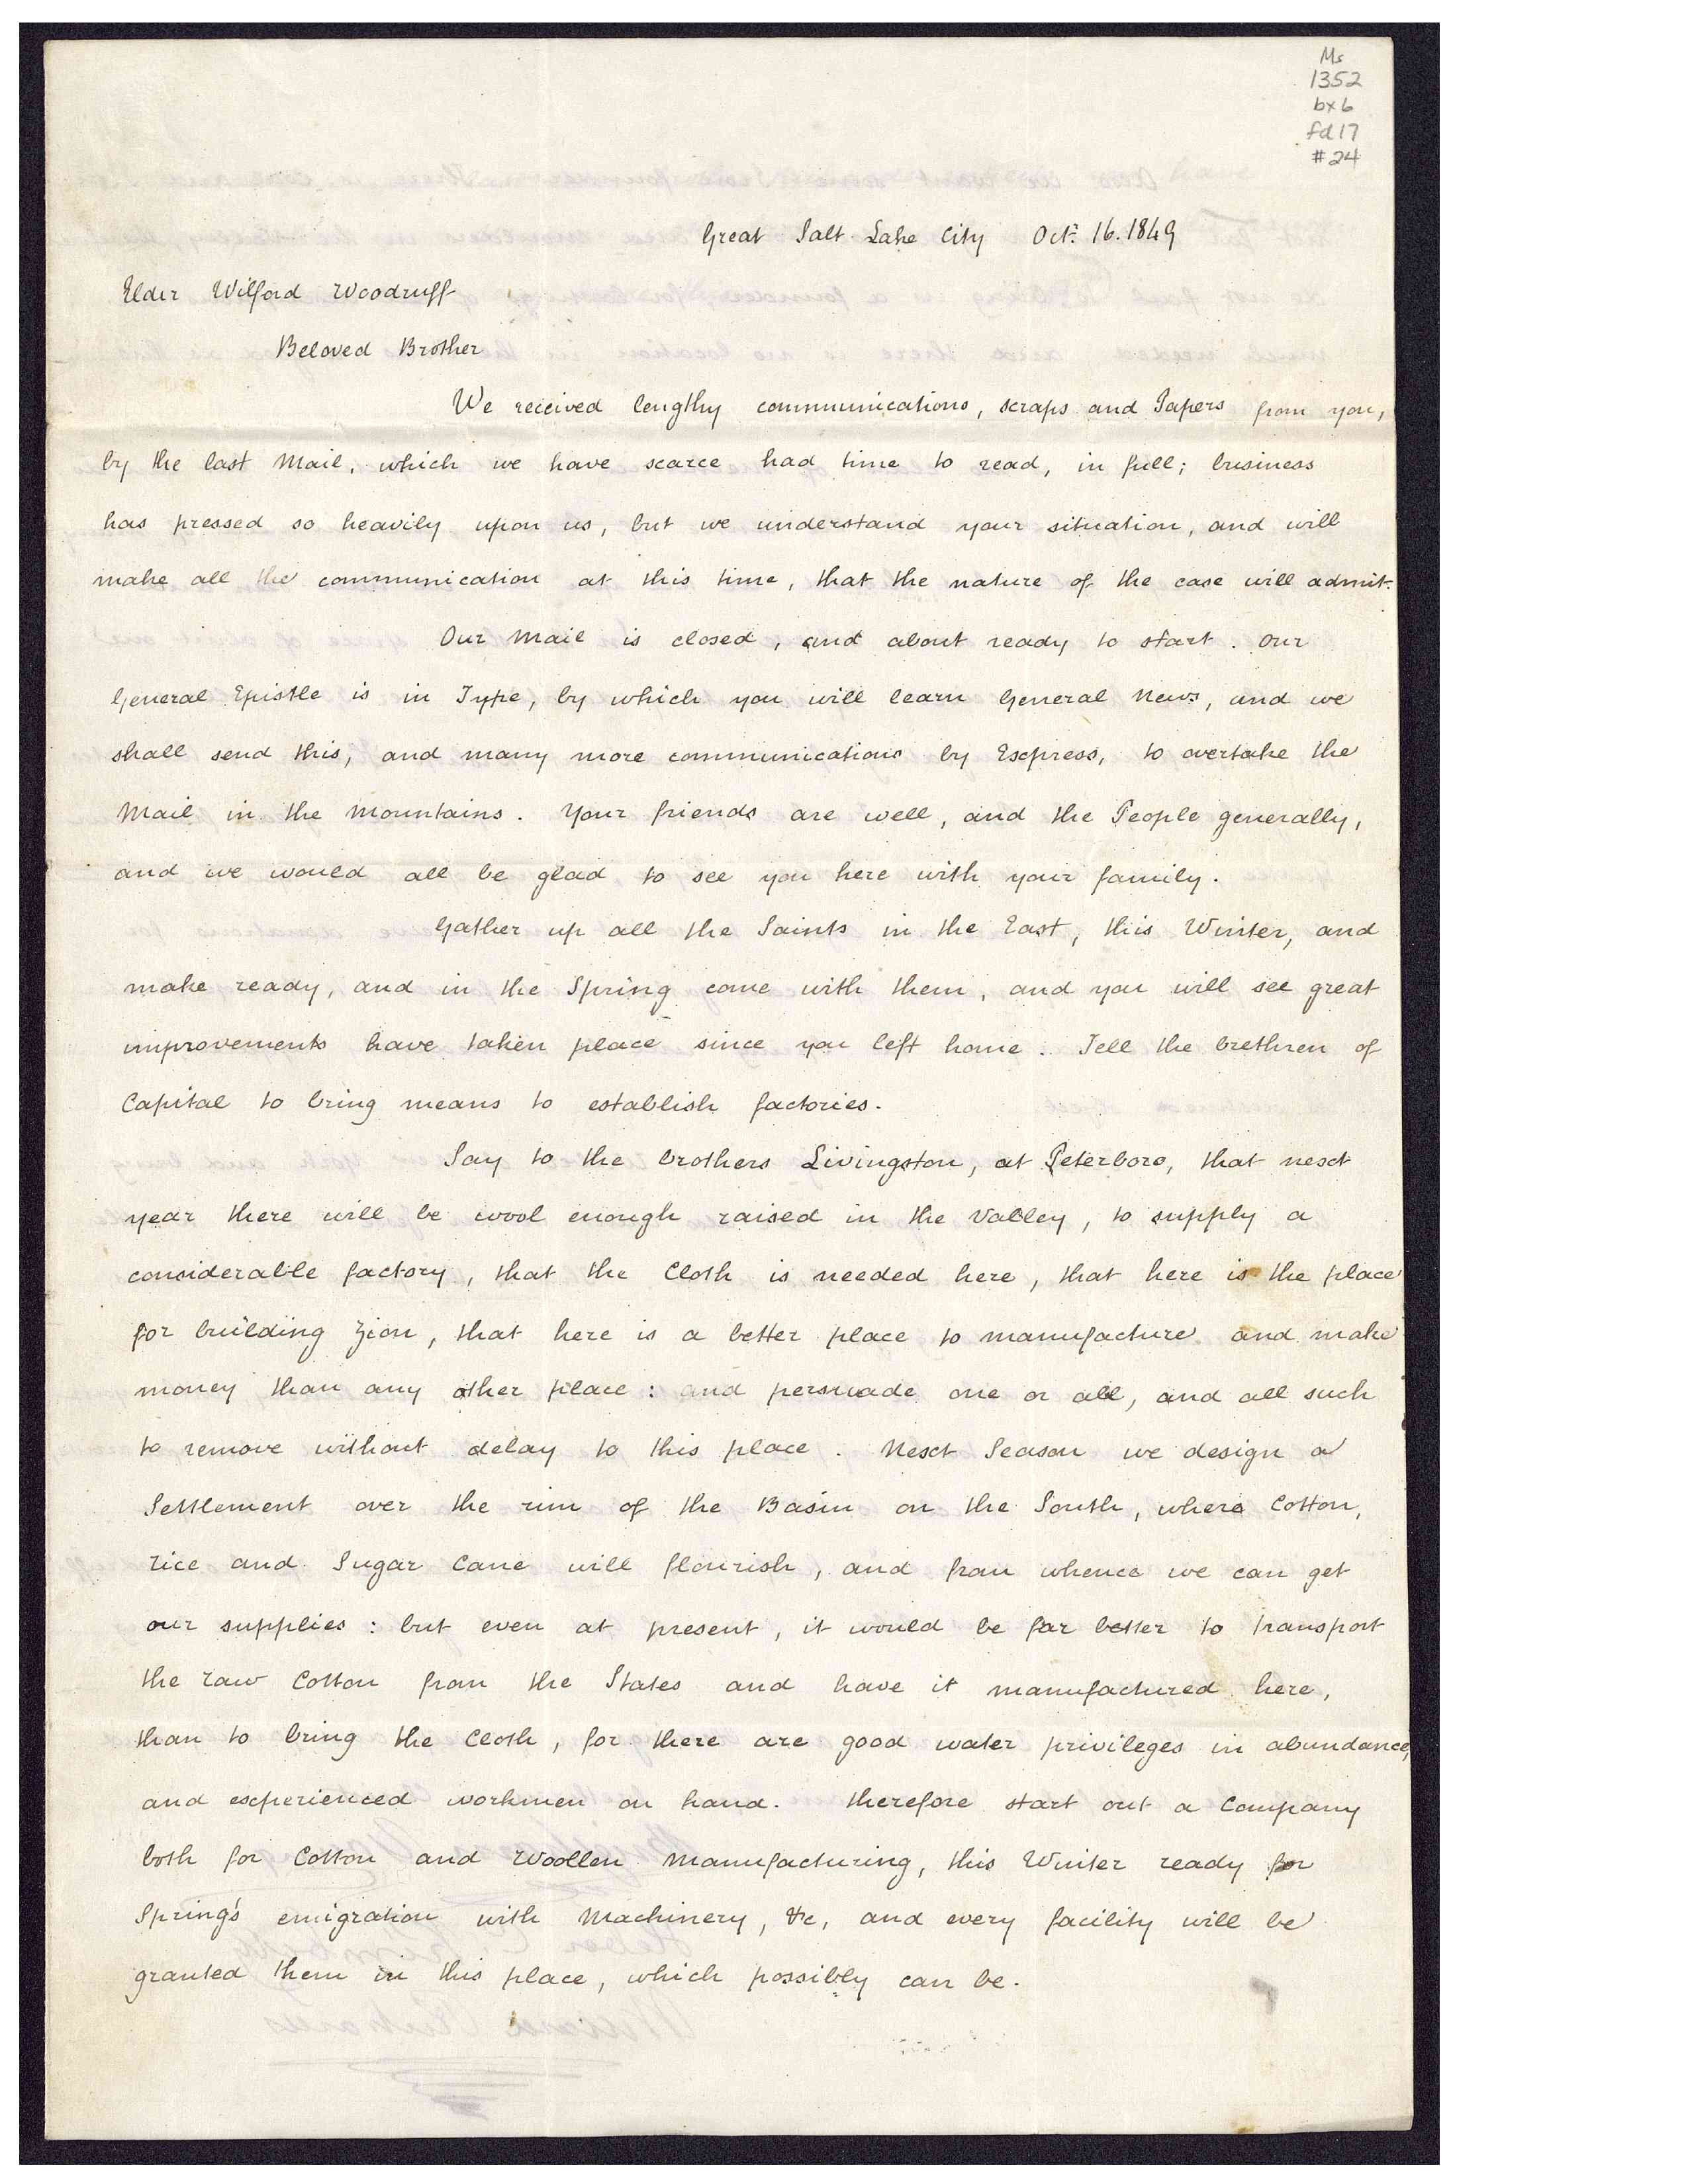 Ms
1352
bx 6
fd 17
#24
Great Salt Lake City Octr. 16. 1849
Elder Wilford Woodruff
Beloved Brother
We received lengthy communications, scraps and Papers from you,
by the last Mail, which we have scarce had time to read, in full; business
has pressed so heavily upon us, but we understand your situation, and will
make all the communication at this time, that the nature of the case will admit.
Our Mail is closed, and about ready to start. Our
General Epistle is in Type, by which you will learn General News, and we
shall send this, and many more communications by Express, to overtake the
Mail in the Mountains. Your friends are well, and the People generally,
and we would all be glad to see you here with your family.
Gather up all the Saints in the East, this Winter, and
make ready, and in the Spring come with them, and you will see great
improvements have taken place since you left home. Tell the brethren of
Capital to bring means to establish factories.
Say to the brothers Livingston, at Peterboro, that next
year there will be wool enough raised in the Valley, to supply a
considerable factory, that the Cloth is needed here, that here is the place
for building Zion, that here is a better place to manufacture and make
money than any other place: and persuade one or all, and all such
to remove without delay to this place. Next Season we design a
Settlement over the rim of the Basin on the South, where Cotton,
rice and Sugar Cane will flourish, and from whence we can get
our supplies: but even at present, it would be far better to transport
the raw Cotton from the States and have it manufactured here,
than to bring the Cloth, for there are good water privileges in abundance,
and experienced workmen on hand. Therefore start out a Company
both for Cotton and Woollen Manufacturing, this Winter ready for
Spring's emigration with Machinery, &c, and every facility will be
granted them in this place, which possibly can be.